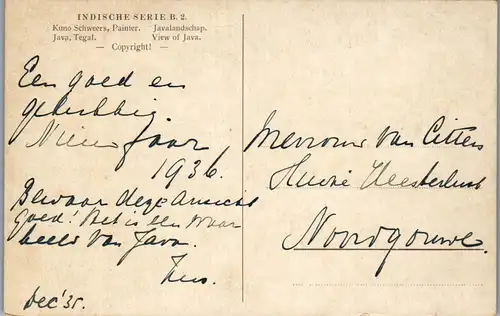 INDISCHE SERIE B. 2.
Kuno Schweers, Painter. Javalandschap.
Java, Tegal. View of Java.
— Copyright! —
Een goed en
gelukkig
Nieuwjaar
1936.
Bewaar deze ansicht
goed! Het is een waar
beeld van Java.
Dec '35.
Mevrouw van Citters
Huize
Noordgouwe.